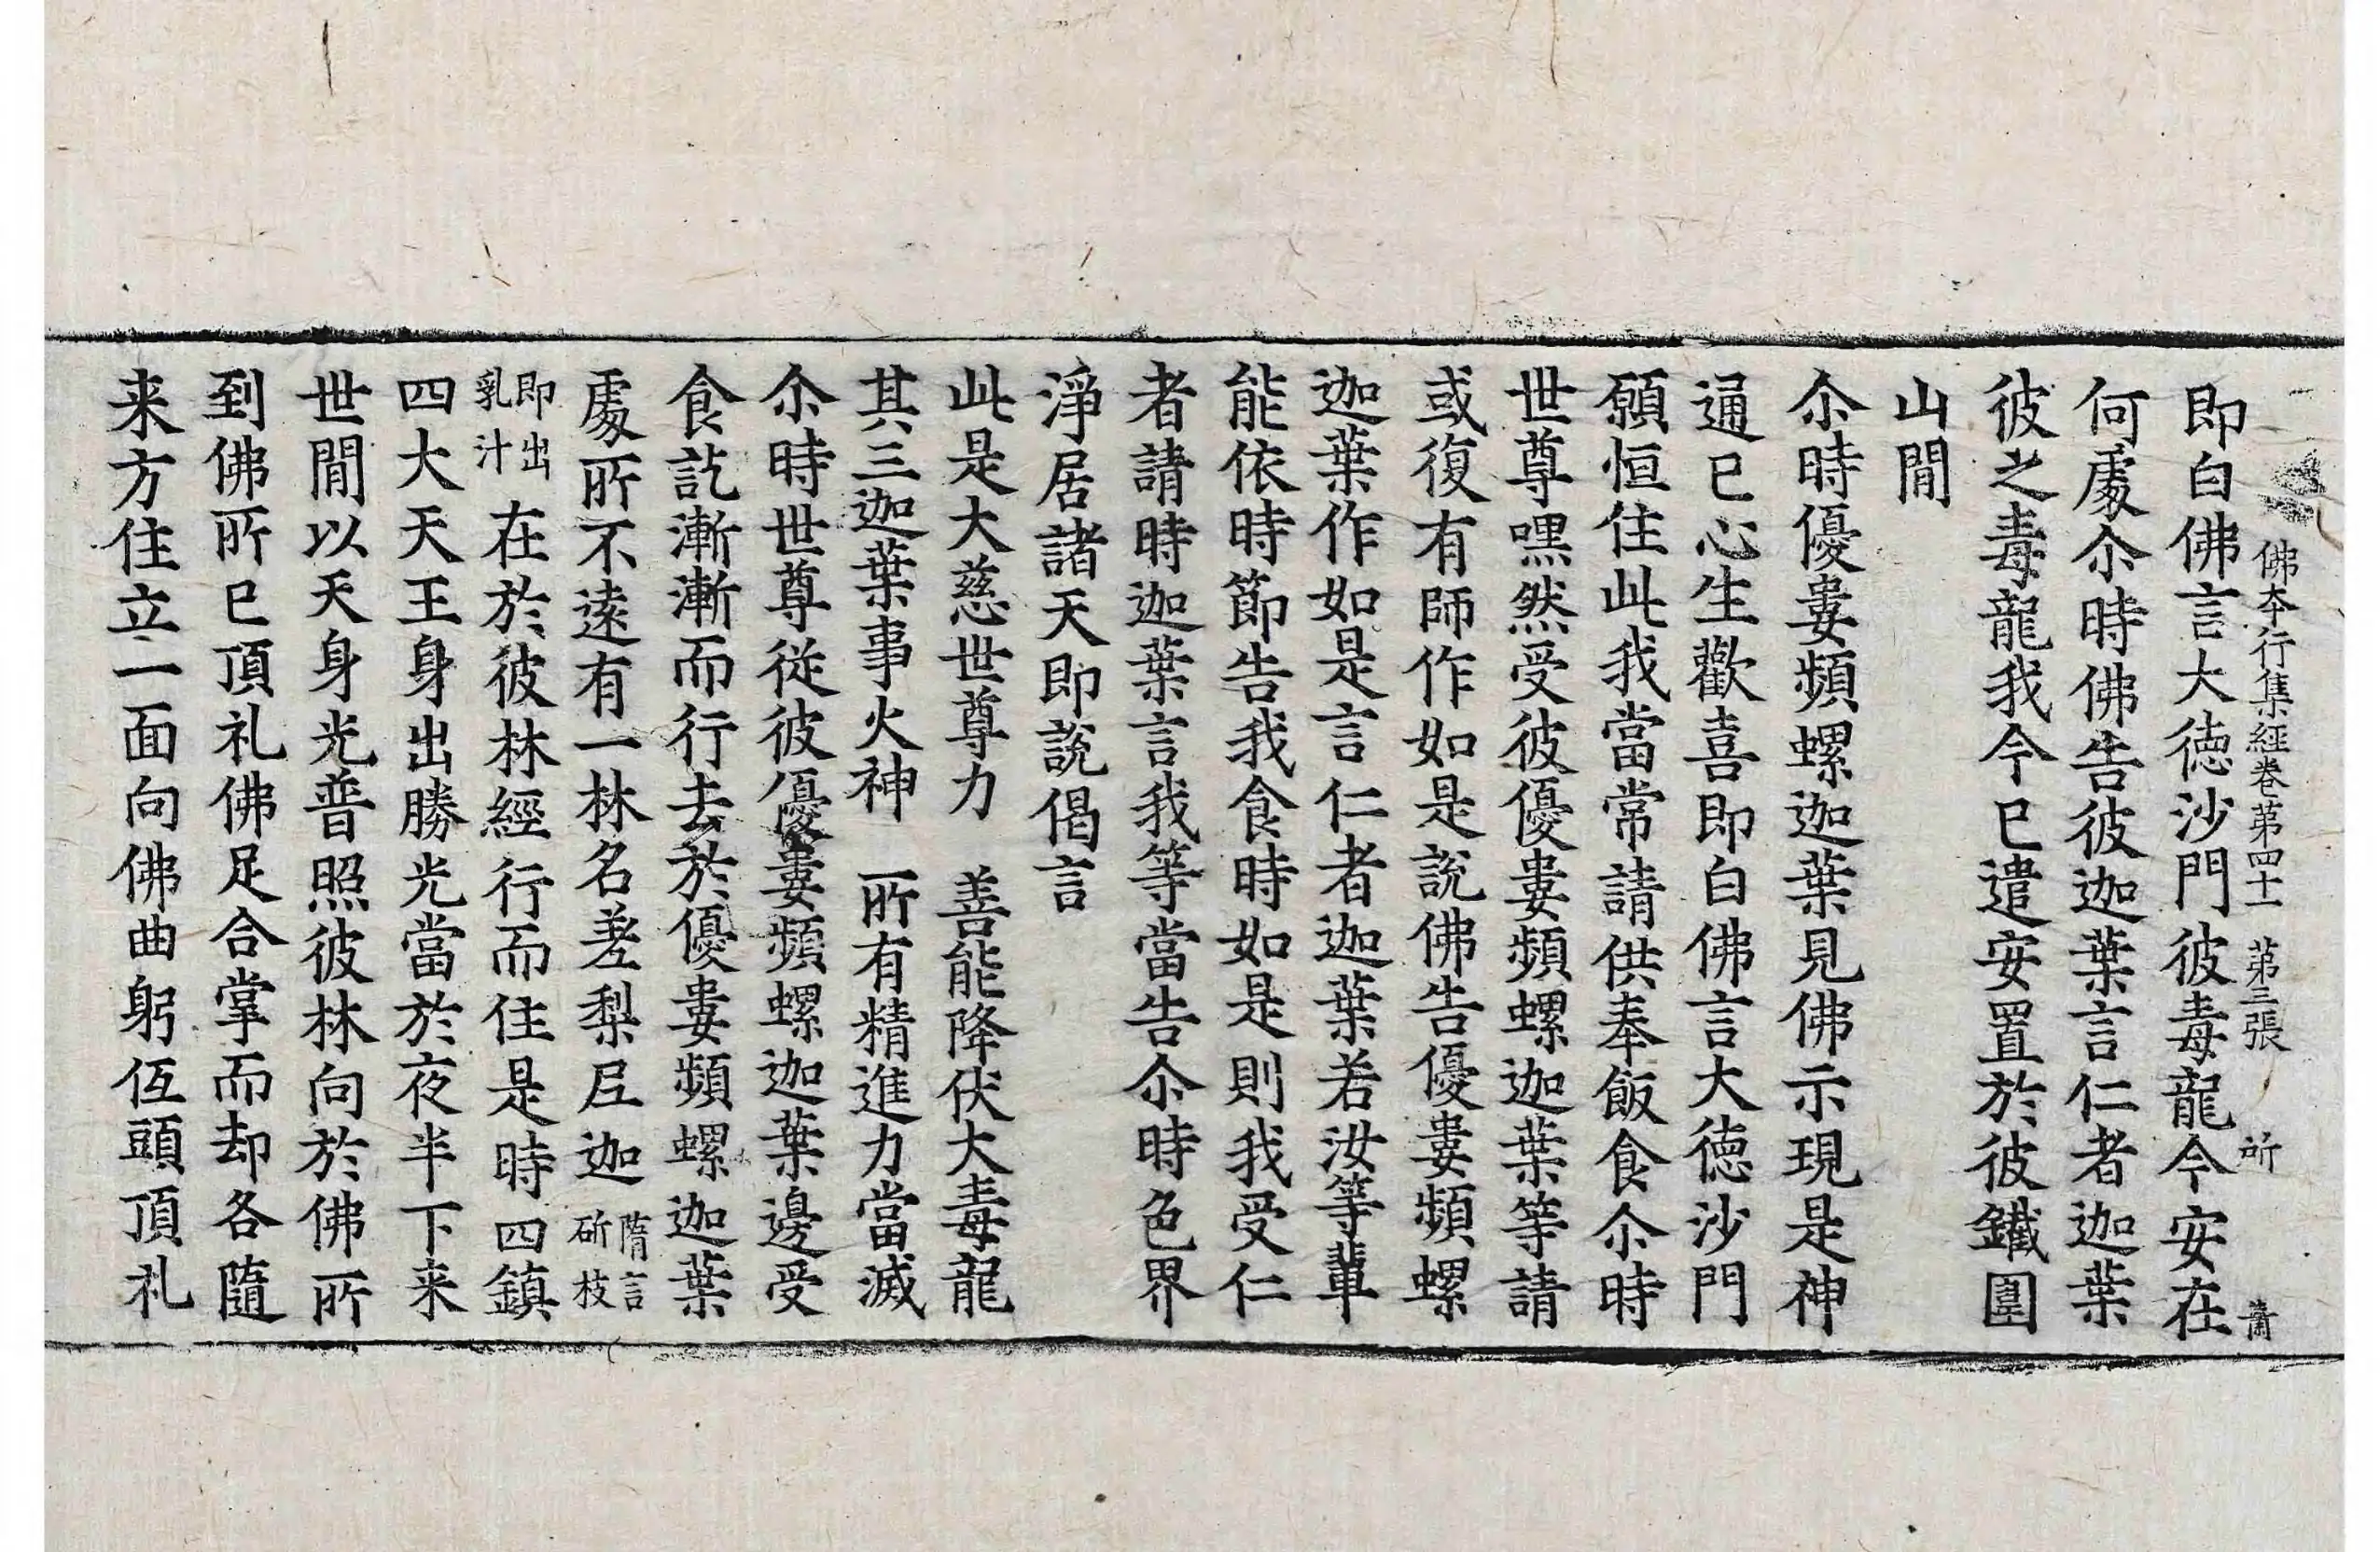 佛本行集經卷第四十一　第三張　所　肅
即白佛言大徳沙門彼毒龍今安在
何處尒時佛告彼迦葉言仁者迦葉
彼之毒龍我今已遣安置於彼鐵圍
山間
尒時優婁頻螺迦葉見佛示現是神
通已心生歡喜即白佛言大徳沙門
願恒住此我當常請供奉飯食尒時
世尊嘿然受彼優婁頻螺迦葉等請
或復有師作如是說佛告優婁頻螺
迦葉作如是言仁者迦葉若汝等輩
能依時節告我食時如是則我受仁
者請時迦葉言我等當告尒時色界
淨居諸天即說偈言
此是大慈世尊力　善能降伏大毒龍
其三迦葉事火神　所有精進力當滅
尒時世尊從彼優婁頻螺迦葉邊受
食訖漸漸而行去於優婁頻螺迦葉
處所不遠有一林名差梨尼迦隋言斫枝
即出乳汁在於彼林經行而住是時四鎮
四大天王身出勝光當於夜半下来
世間以天身光普照彼林向於佛所
到佛所已頂礼佛足合掌而却各隨
来方住立一面向佛曲躬伍頭頂礼